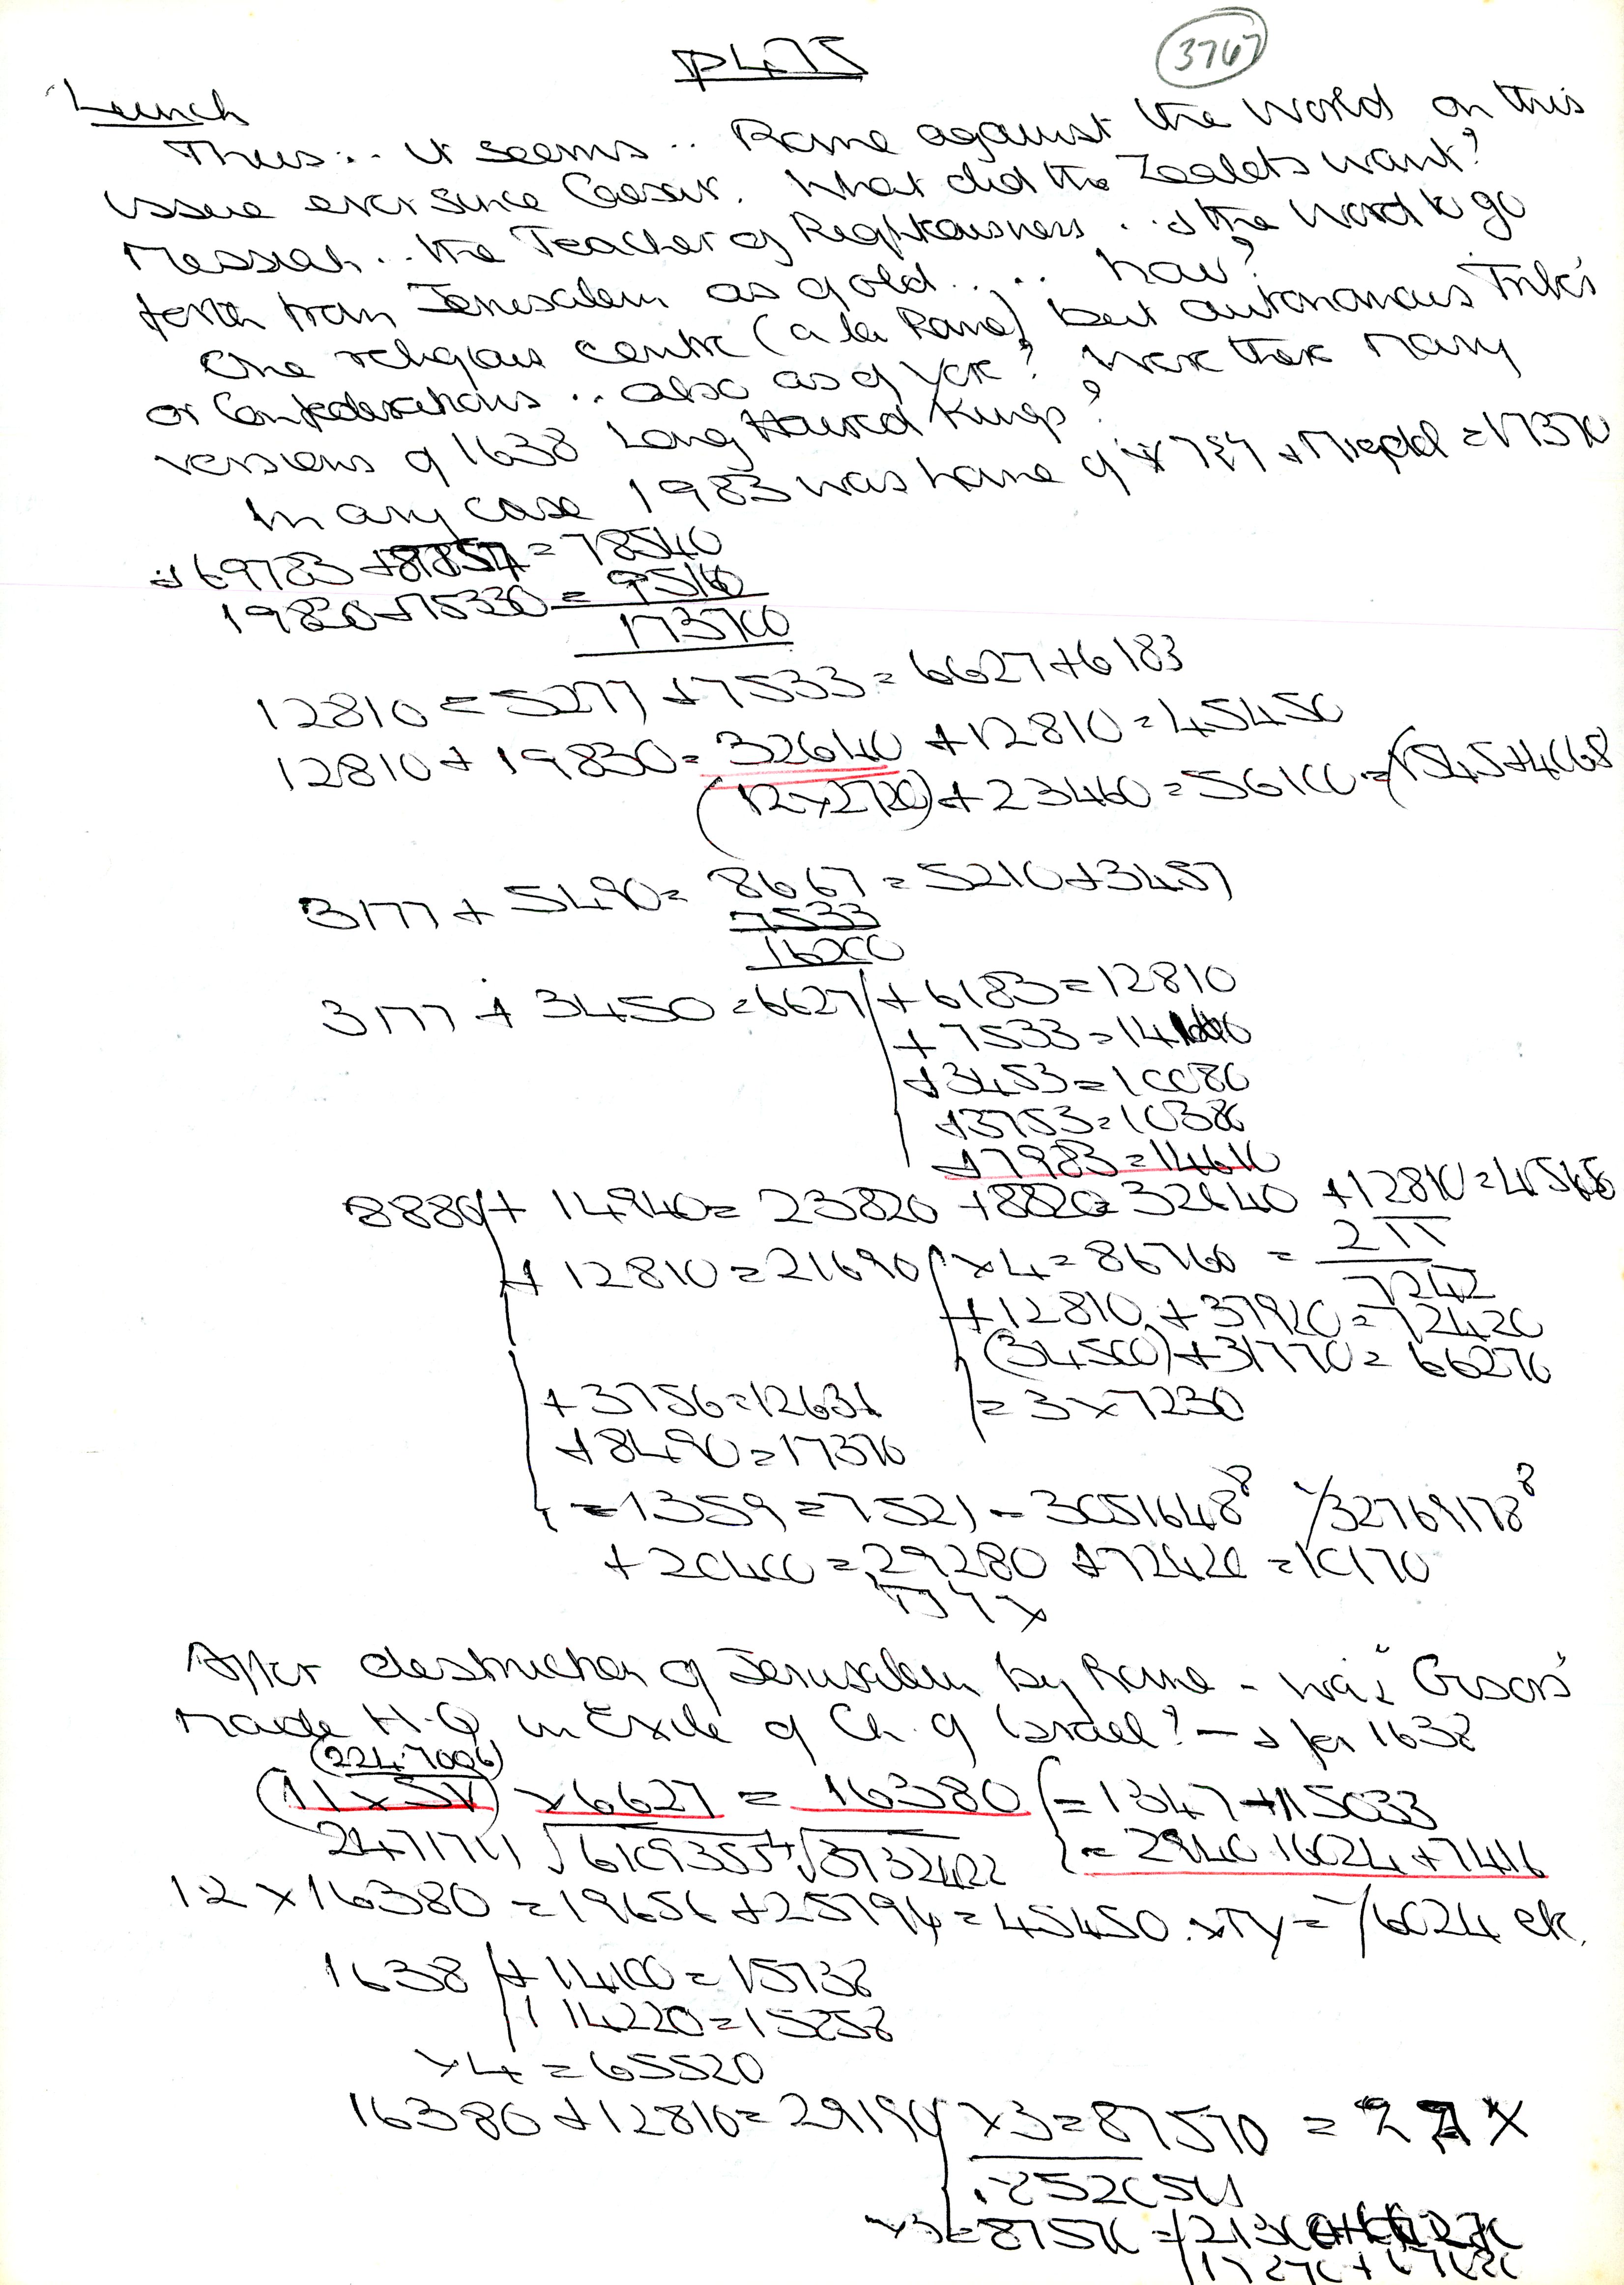 P475
3767
Lunch
Thus... it seems.. Rome against the World on this
issue ever since Caesar. What did the Zealots want?
Messiah.. the Teacher of Righteousness.. & the Word to go
forth from Jerusalem as of old.... how?
One religious centre (a la Rome) but autonomous Tribes
or Confederations.. also as of Yore? Were there many
versions of 1638 Long Haired Kings?
In any case 1983 was hane of = 17370
+ 69783 + = 78540
19830 + 75330 = 95160
173700
12810 = 5277 + 7533 = 6627 + 6183
12810 + 19830 = 32640 + 12810 = 45450
(12 x 2720) + 23460 = 56100 =
3177 + 5490 = 8667 = 5210 + 3457
7533
16200
3177 + 3450 = 6627 + 6183 = 12810
+ 7533 =
+ 3453 = 10080
+ 3753 = 10380
+ 7983 = 14610
8880 + 14940 = 23820 + 8820 = 32640 + 12810 =
+ 12810 = 21690 x 4 = 86760 = 2π
7242
+ 12810 + 37920 = 72420
(34500) + 31770 = 66270
+ 3756 = 12636 = 3 x 7230
+ 8490 = 17370
= 1359 = 7521 = 3051648⁸ √32769178⁸
+ 20400 = 29280 + 72420 = 10170
After destruction of Jerusalem by Rome - was Gisors
made H.Q in Exile of Ch. of Israel? - & for 1638
(224.7006)
(11 x 51) x 6627 = 16380 = 1347 + 15033
2471711 √6109355⁴ √3732422 = 2940 16024 + 7416
1.2 x 16380 = 19656 + 25794 = 45450. x Ty = /6024 etc.
1638 + 14100 = 15738
14220 = 15858
x 4 = 65520
16380 + 12810 = 29190 x 3 = 87570 =
x 3 = 87570 =